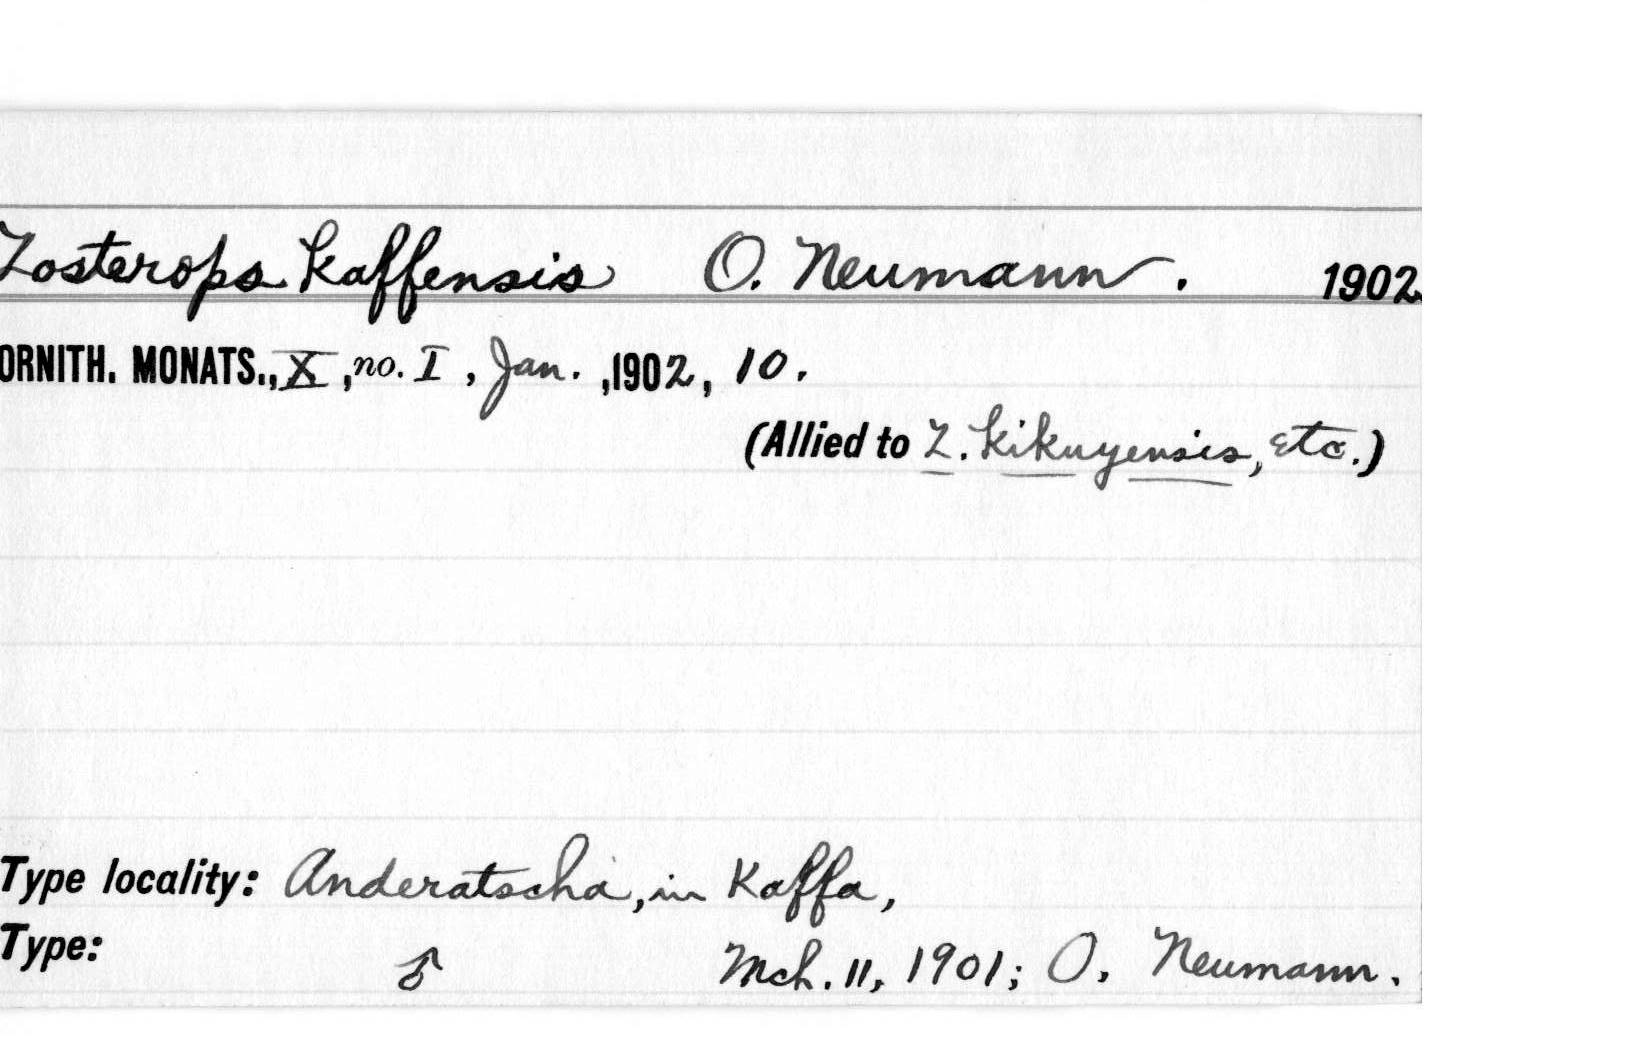 Zosterops kaffensis O. Neumann. 1902.
ORNITH. MONATS., X, no. I, Jan., 1902, 10.
(Allied to Z. kikuyensis, etc.)
Type locality: Anderatscha, in Kaffa,
Type: ♂ Mch. 11, 1901; O. Neumann.